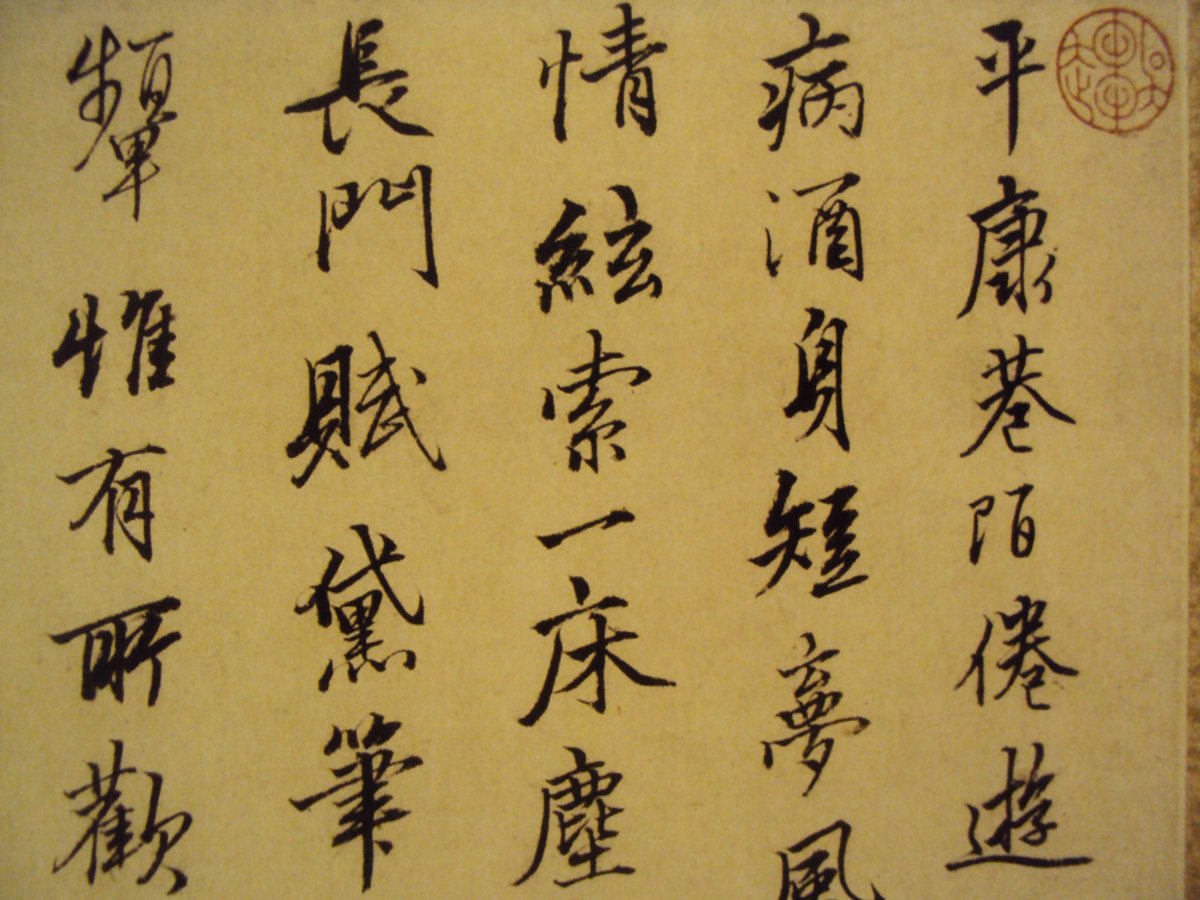 平康巷陌倦遊
病酒身短夢風
情絃索一床塵
長門賦黛筆
顰惟有所歡